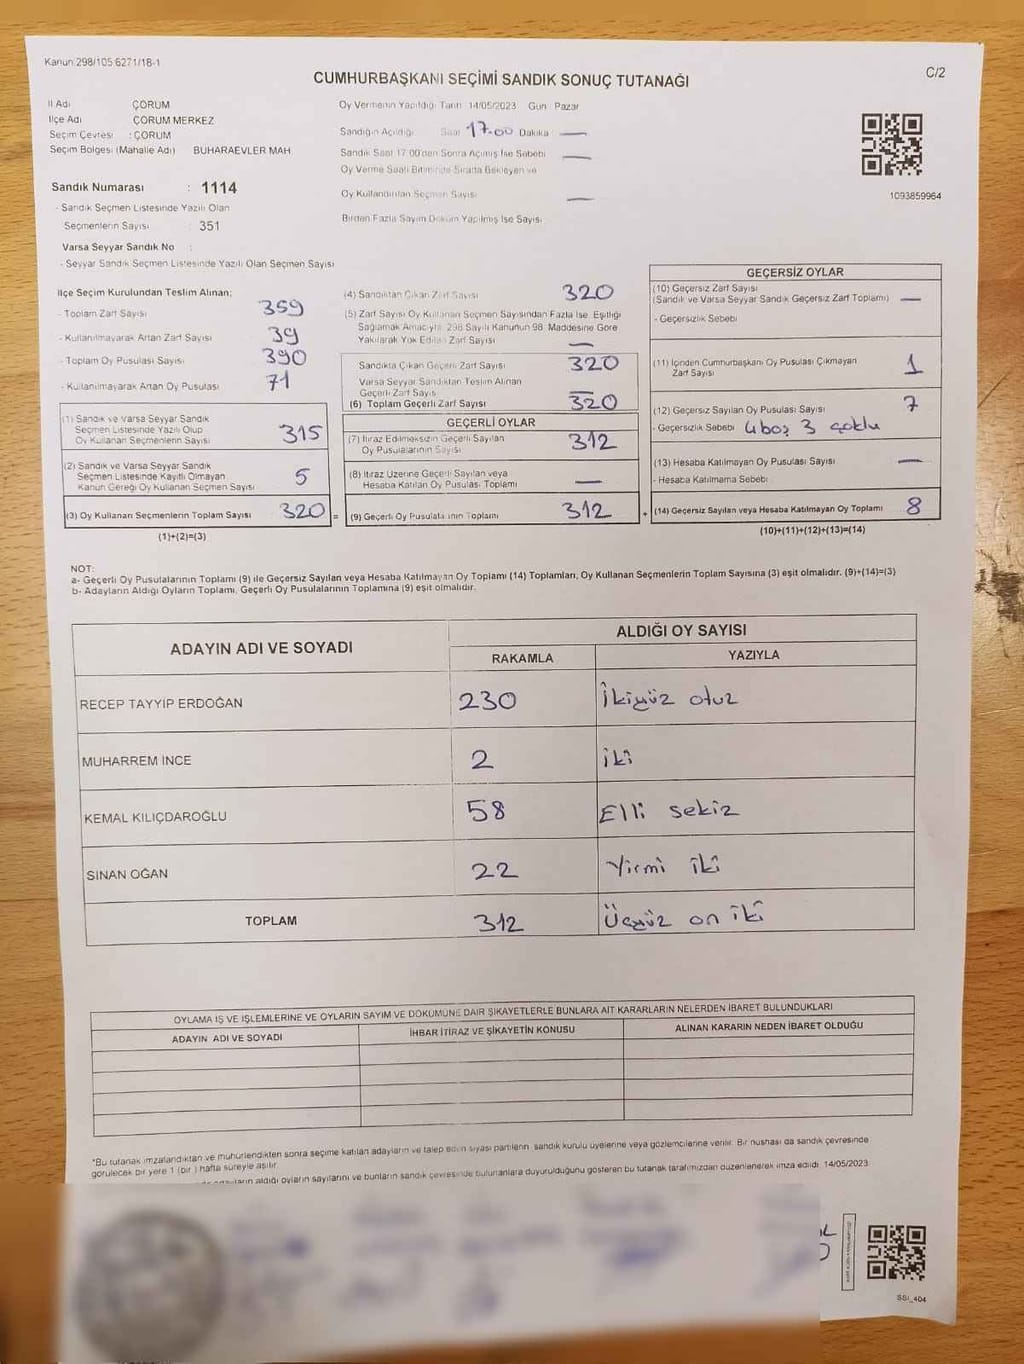 Kanun 298/105 6271/18-1
C/2
CUMHURBAŞKANI SEÇİMİ SANDIK SONUÇ TUTANAĞI
İl Adı ÇORUM
İlçe Adı ÇORUM MERKEZ
Seçim Çevresi : ÇORUM
Seçim Bölgesi (Mahalle Adı) BUHARAEVLER MAH.
Sandık Numarası : 1114
- Sandık Seçmen Listesinde Yazılı Olan
Seçmenlerin Sayısı : 351
Varsa Seyyar Sandık No :
- Seyyar Sandık Seçmen Listesinde Yazılı Olan Seçmen Sayısı
Oy Vermenin Yapıldığı Tarih 14/05/2023 Gün Pazar
Sandığın Açıldığı Saat 17.00 Dakika —
Sandık Saat 17:00'den Sonra Açılmış İse Sebebi —
Oy Verme Saati Bitiminde Sırada Bekleyen ve
Oy Kullandırılan Seçmen Sayısı —
Birden Fazla Sayım Döküm Yapılmış İse Sayısı
1093859964
İlçe Seçim Kurulundan Teslim Alınan;
- Toplam Zarf Sayısı 359
- Kullanılmayarak Artan Zarf Sayısı 39
- Toplam Oy Pusulası Sayısı 390
- Kullanılmayarak Artan Oy Pusulası 71
(1) Sandık ve Varsa Seyyar Sandık
Seçmen Listesinde Yazılı Olup
Oy Kullanan Seçmenlerin Sayısı 315
(2) Sandık ve Varsa Seyyar Sandık
Seçmen Listesinde Kayıtlı Olmayan
Kanun Gereği Oy Kullanan Seçmen Sayısı 5
(3) Oy Kullanan Seçmenlerin Toplam Sayısı 320
(1)+(2)=(3)
(4) Sandıktan Çıkan Zarf Sayısı 320
(5) Zarf Sayısı Oy Kullanan Seçmen Sayısından Fazla İse, Eşitliği
Sağlamak Amacıyla, 298 Sayılı Kanunun 98. Maddesine Göre
Yakılarak Yok Edilen Zarf Sayısı —
Sandıkta Çıkan Geçerli Zarf Sayısı 320
Varsa Seyyar Sandıktan Teslim Alınan
Geçerli Zarf Sayısı —
(6) Toplam Geçerli Zarf Sayısı 320
GEÇERLİ OYLAR
(7) İtiraz Edilmeksizin Geçerli Sayılan
Oy Pusulalarının Sayısı 312
(8) İtiraz Üzerine Geçerli Sayılan veya
Hesaba Katılan Oy Pusulası Toplamı —
= (9) Geçerli Oy Pusulalarının Toplamı 312
GEÇERSİZ OYLAR
(10) Geçersiz Zarf Sayısı
(Sandık ve Varsa Seyyar Sandık Geçersiz Zarf Toplamı) —
- Geçersizlik Sebebi
(11) İçinden Cumhurbaşkanı Oy Pusulası Çıkmayan
Zarf Sayısı 1
(12) Geçersiz Sayılan Oy Pusulası Sayısı 7
- Geçersizlik Sebebi 4 boş 3 çoklu
(13) Hesaba Katılmayan Oy Pusulası Sayısı —
- Hesaba Katılmama Sebebi
+ (14) Geçersiz Sayılan veya Hesaba Katılmayan Oy Toplamı 8
(10)+(11)+(12)+(13)=(14)
NOT:
a- Geçerli Oy Pusulalarının Toplamı (9) ile Geçersiz Sayılan veya Hesaba Katılmayan Oy Toplamı (14) Toplamları, Oy Kullanan Seçmenlerin Toplam Sayısına (3) eşit olmalıdır. (9)+(14)=(3)
b- Adayların Aldığı Oyların Toplamı, Geçerli Oy Pusulalarının Toplamına (9) eşit olmalıdır.
ADAYIN ADI VE SOYADI ALDIĞI OY SAYISI
RAKAMLA YAZIYLA
RECEP TAYYİP ERDOĞAN 230 İkiyüz otuz
MUHARREM İNCE 2 iki
KEMAL KILIÇDAROĞLU 58 Elli sekiz
SİNAN OĞAN 22 Yirmi iki
TOPLAM 312 Üçyüz on iki
OYLAMA İŞ VE İŞLEMLERİNE VE OYLARIN SAYIM VE DÖKÜMÜNE DAİR ŞİKAYETLERLE BUNLARA AİT KARARLARIN NELERDEN İBARET BULUNDUKLARI
ADAYIN ADI VE SOYADI İHBAR İTİRAZ VE ŞİKAYETİN KONUSU ALINAN KARARIN NEDEN İBARET OLDUĞU
*Bu tutanak imzalandıktan ve mühürlendikten sonra seçime katılan adayların ve talep eden siyasi partilerin sandık kurulu üyelerine veya gözlemcilerine verilir. Bir nüshası da sandık çevresinde
görülecek bir yere 1 (bir) hafta süreyle asılır.
aldığı oyların sayılarını ve bunların sandık çevresinde bulunanlara duyurulduğunu gösteren bu tutanak tarafımızdan düzenlenerek imza edildi. 14/05/2023
SSI_404